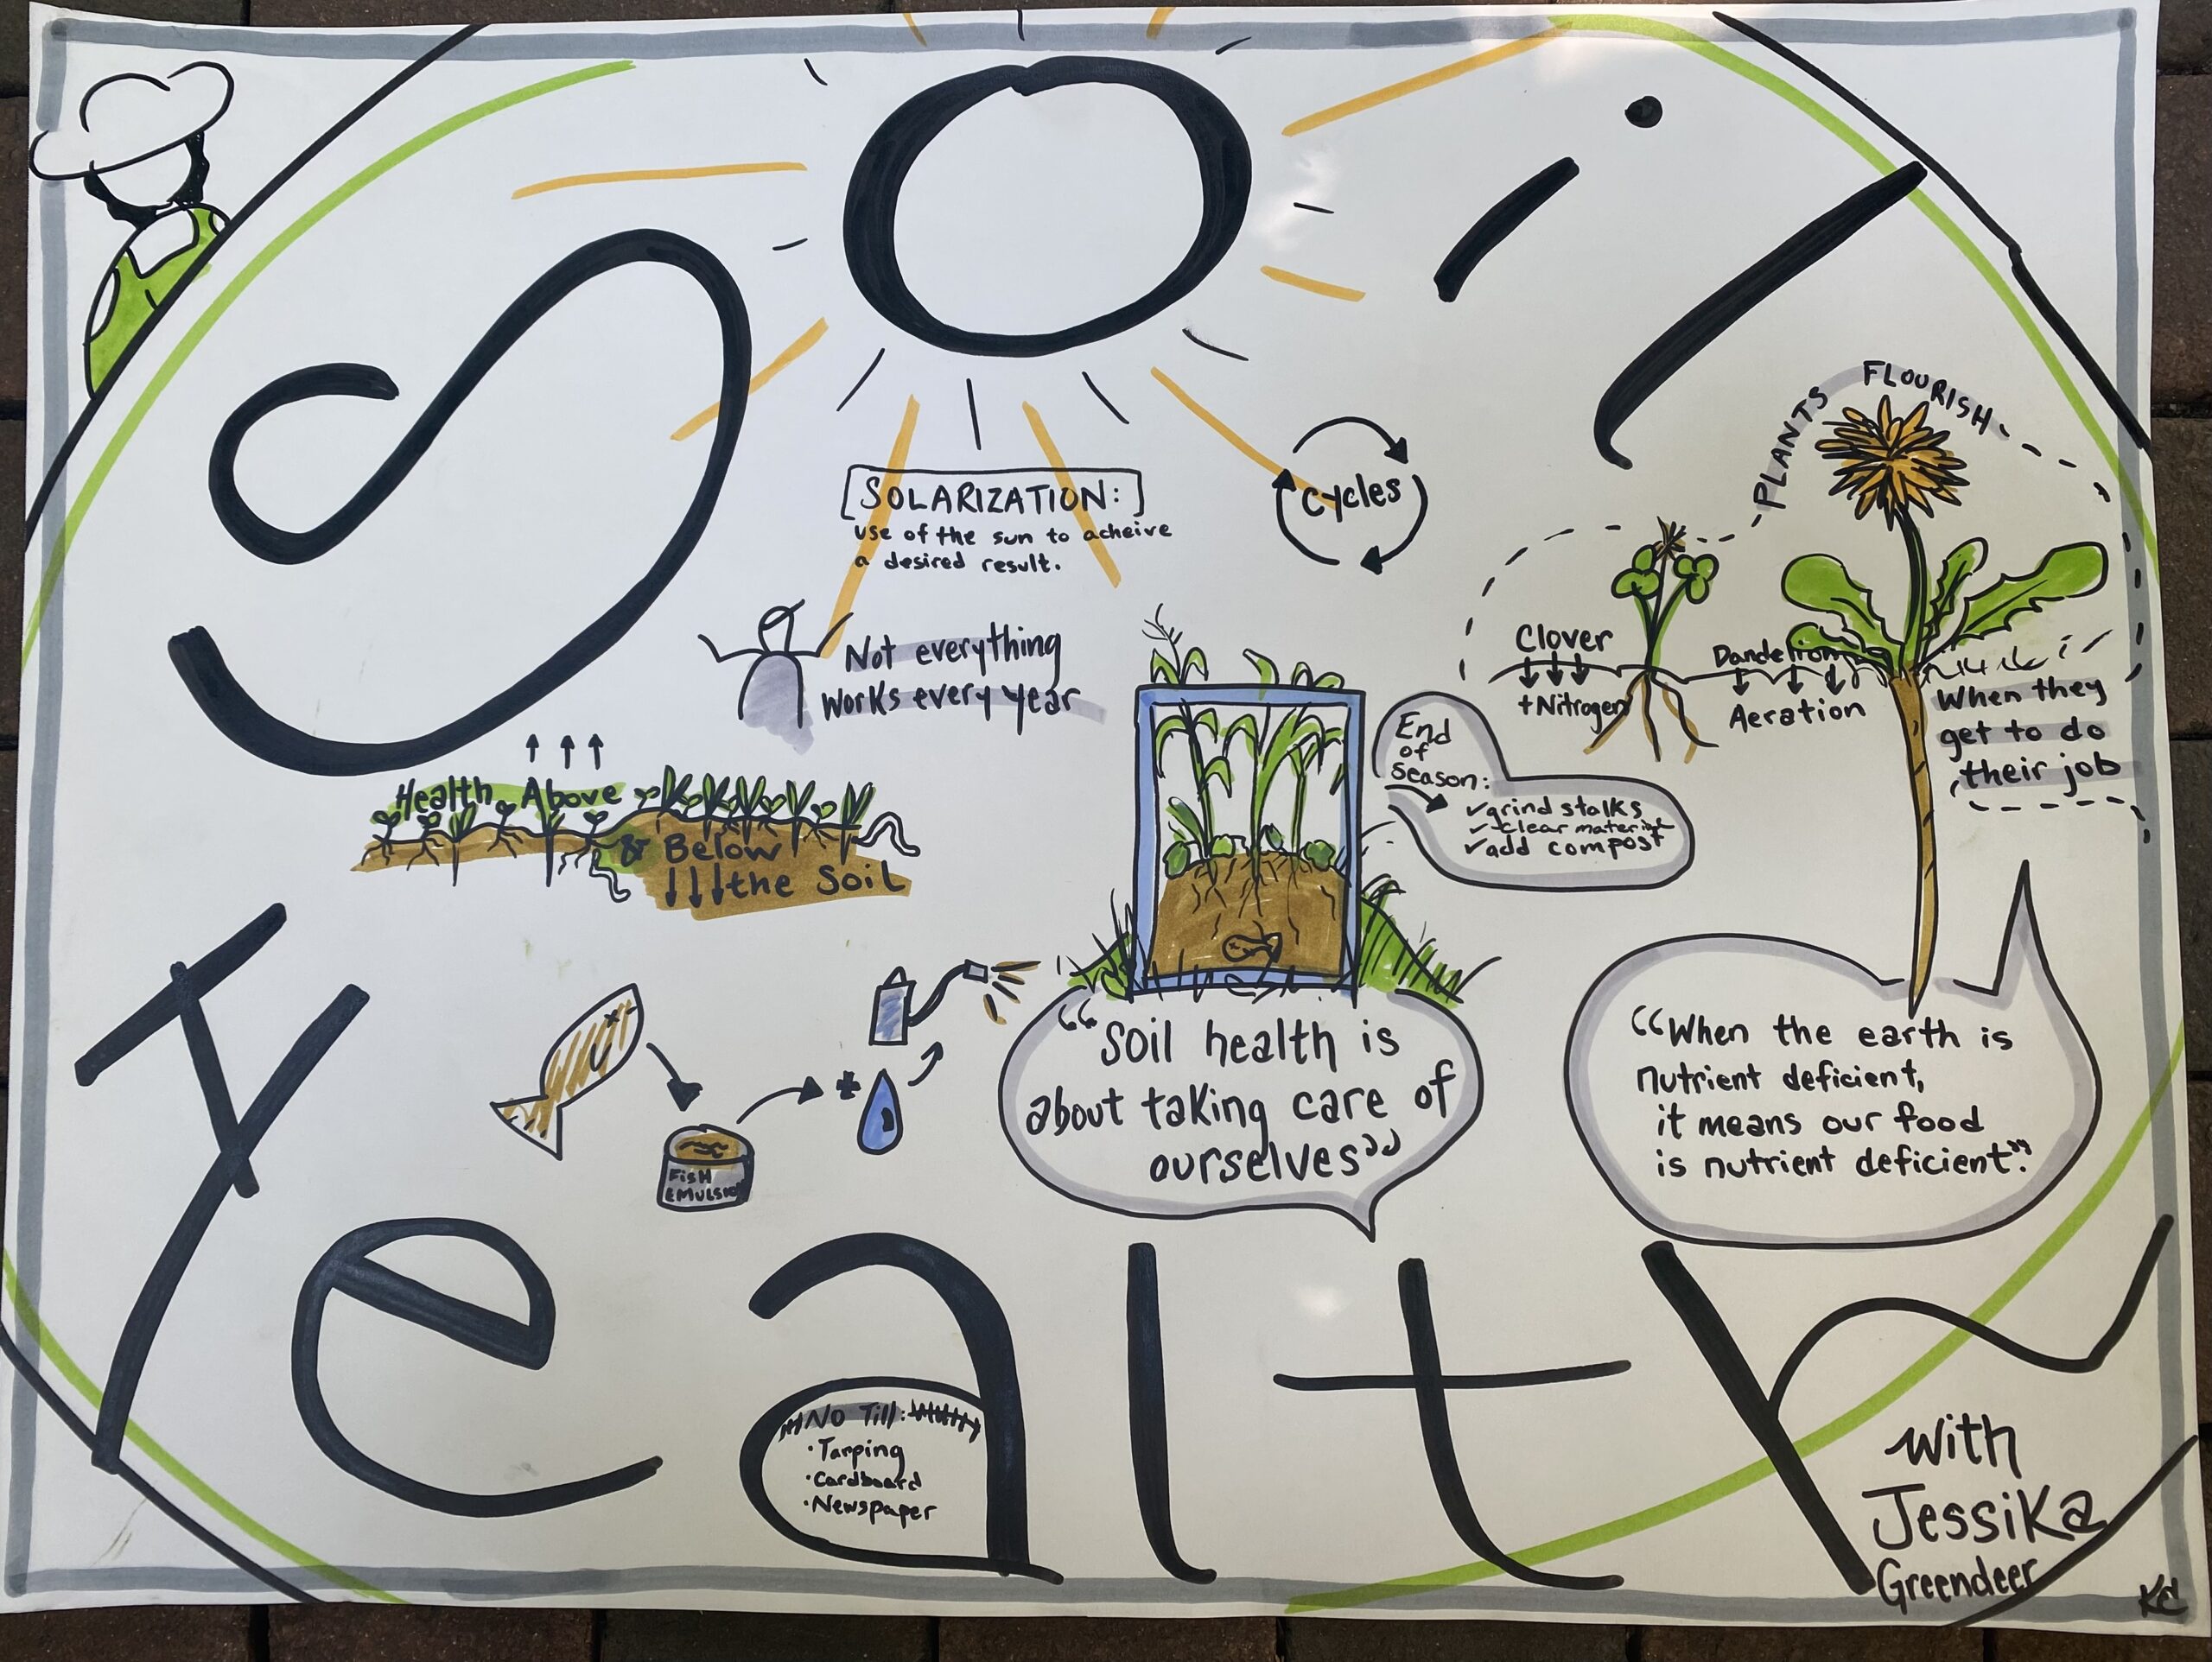 Soil
SOLARIZATION:
use of the sun to acheive
a desired result.
Cycles
PLANTS FLOURISH
Clover
+Nitrogen
Dandelion
Aeration
When they
get to do
their job
Not everything
works every year
Health Above
& Below
the Soil
End
of
Season:
✓grind stalks
✓clear material
✓add compost
FISH
EMULSION
+
"Soil health is
about taking care of
ourselves"
"When the earth is
nutrient deficient,
it means our food
is nutrient deficient."
Health
No Till:
·Tarping
·Cardboard
·Newspaper
with
Jessika
Greendeer
KC